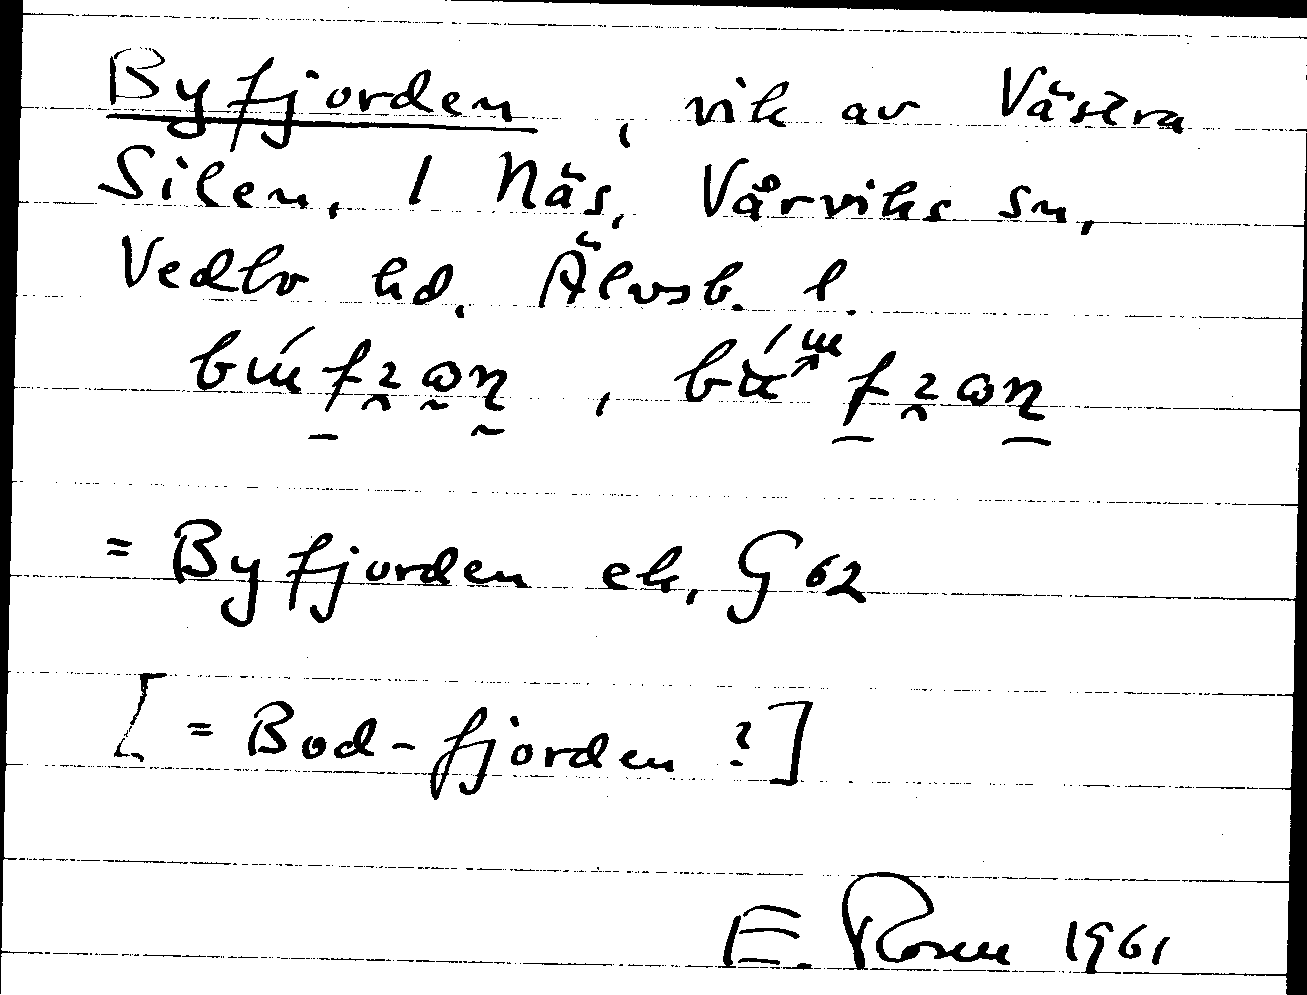 Byfjorden, vik av Västra
Silen, 1 Näs, Vårviks sn,
Vedbo hd, Älvsb. l.
= Byfjorden ek, G 62
[= Bod-fjorden?]
E. Rosell 1961